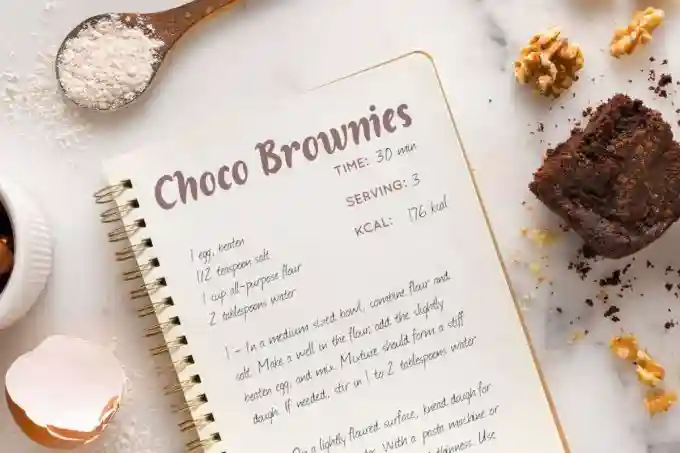 Choco Brownies
TIME: 30 min
SERVING: 3
KCAL: 176 kcal
1 egg, beaten
1/2 teaspoon salt
1 cup all-purpose flour
2 tablespoons water
1 - In a medium sized bowl, combine flour and
salt. Make a well in the flour, add the slightly
beaten egg, and mix. Mixture should form a stiff
dough. If needed, stir in 1 to 2 tablespoons water
On a lightly floured surface, knead dough for
With a pasta machine or
Use